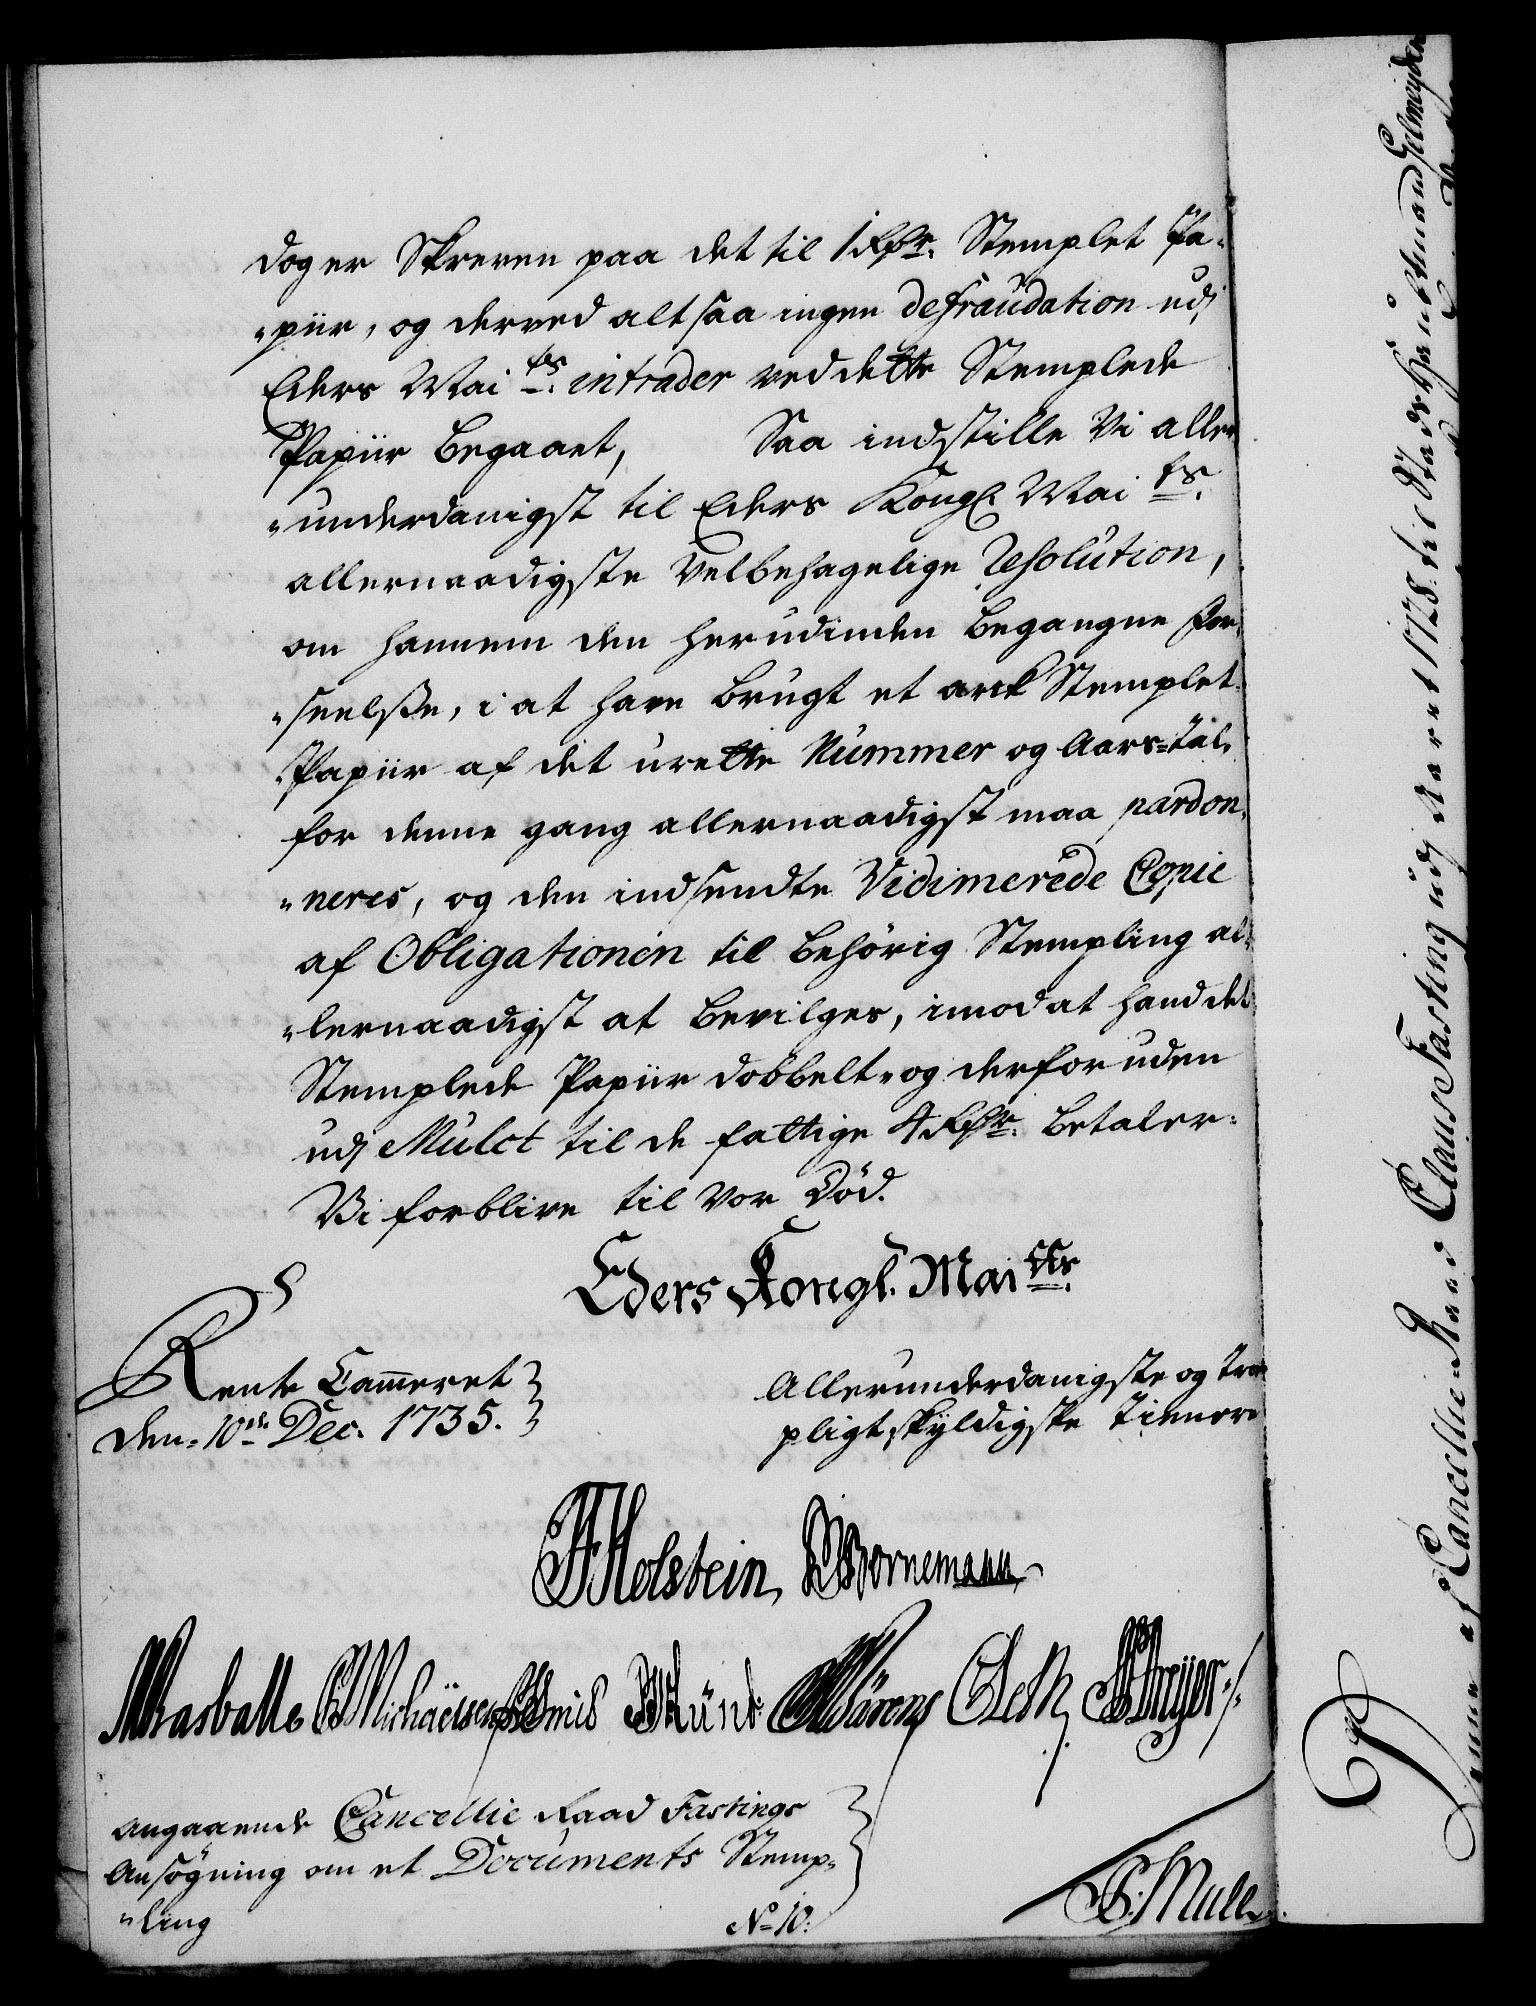 dog er Skreven paa det til 1 Rdr. Stemplet Pa-
"piir, og derved altsaa ingen defraudation udj
Eders Mai.ts intrader ved dette Stemplede
Papiir begaaet, Saa indstille Vi aller
"underdanigst til Eders Kongl. Mai.ts
allernaadigste Velbehagelige Resolution,
om hannem den herudinden begangne For-
"seelsse, i at have brugt et arck Stemplet
Papiir af det urette Nummer og Aars-Tal,
for denne gang allernaadigst maa pardon-
"neres, og den indsendte Vidimerede Copie
af Obligationen til behörig Stempling al-
"lernaadigst at bevilges, imod at hand det
Stemplede Papiir dobbelt, og derforuden
udj Mulct til de fattige 4 Rdr. betaler.
Vi forblive til vor Död.
Eders Kongl. Mai.tts
Rente Cammeret
den 10de Dec. 1735.
Allerunderdanigste og Troe
pligtskyldigste Tienere
Holstein, Bornemann
Rasballe Michaelsen
Angaaende Cancellie Raad Fastings
Ansögning om et Documents Stemp-
"ling
No 10.
Denne af Cancellie Raad Claus Fasting udj Aaret 1728. til Stadshauptmand Gelmeyden